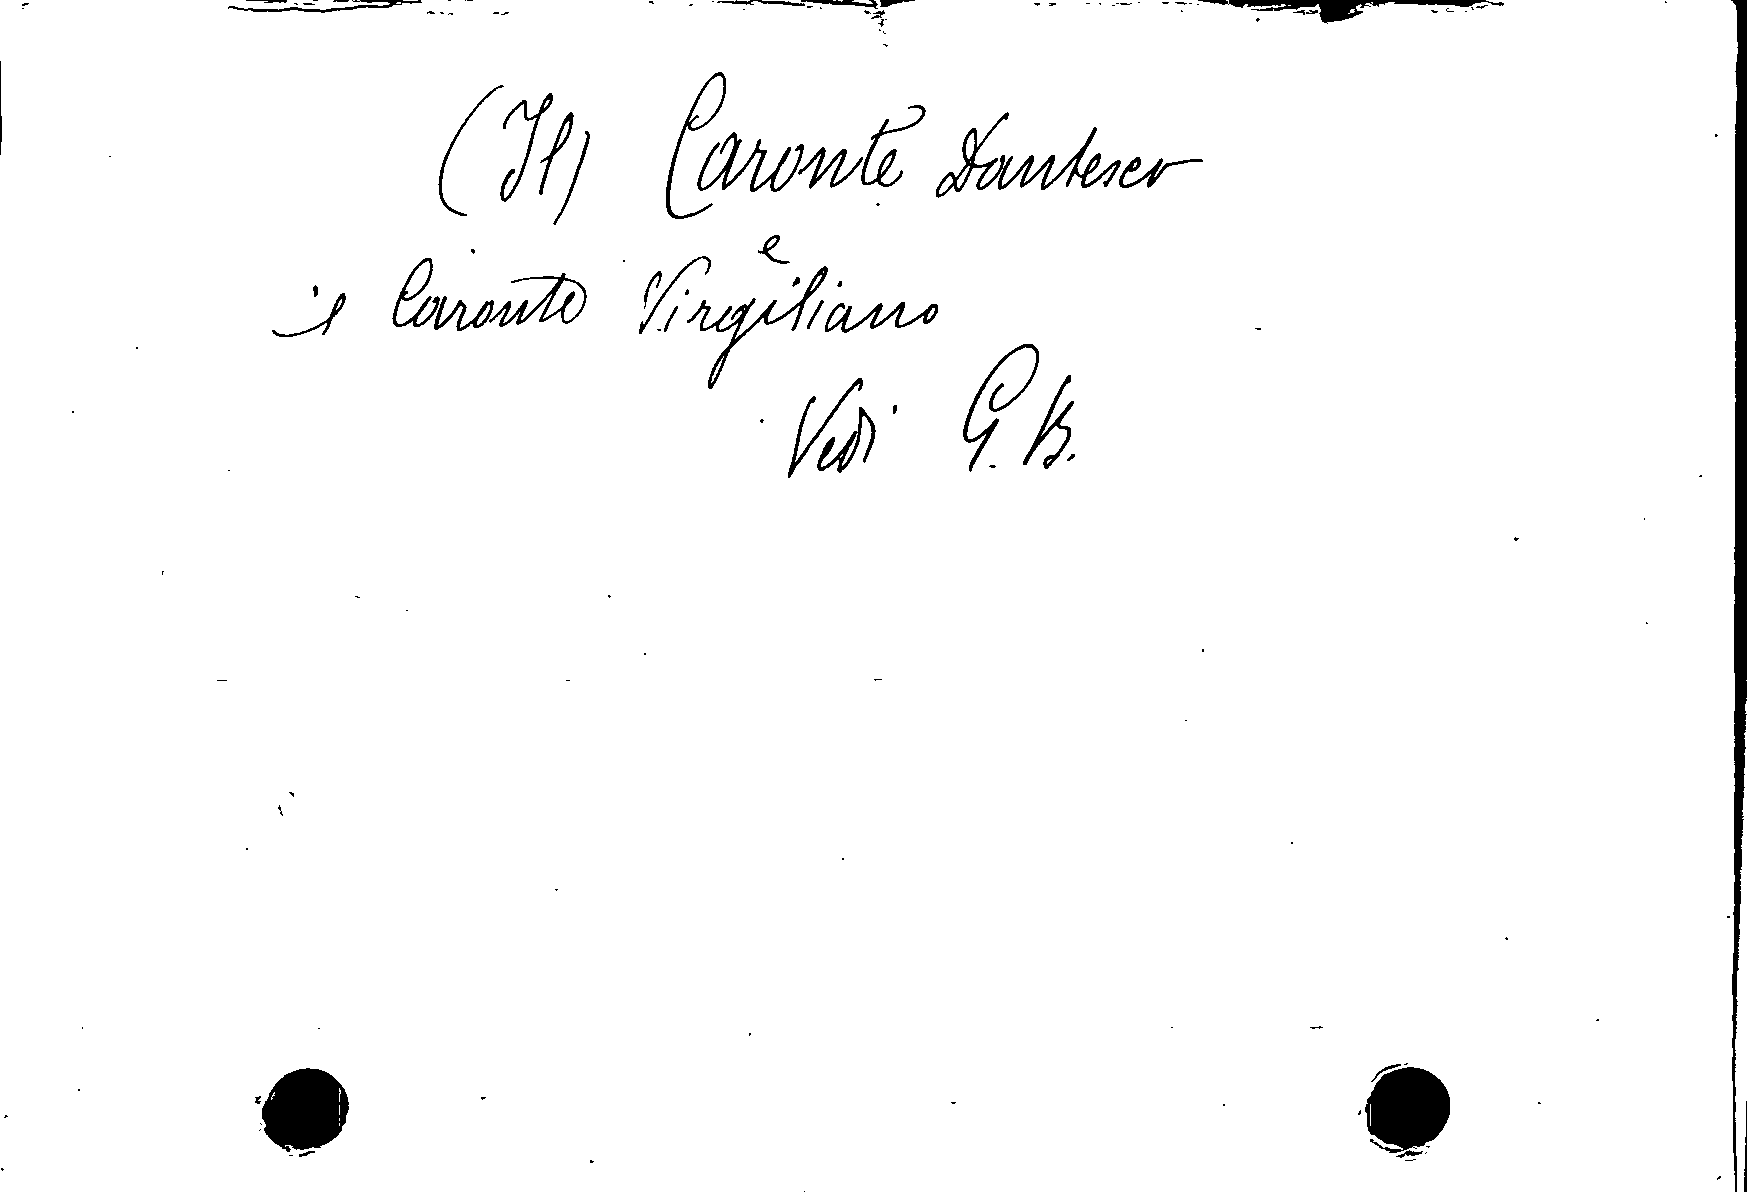 (Il) Caronte Dantesco
e
il Caronte Virgiliano
Vedi G. B.